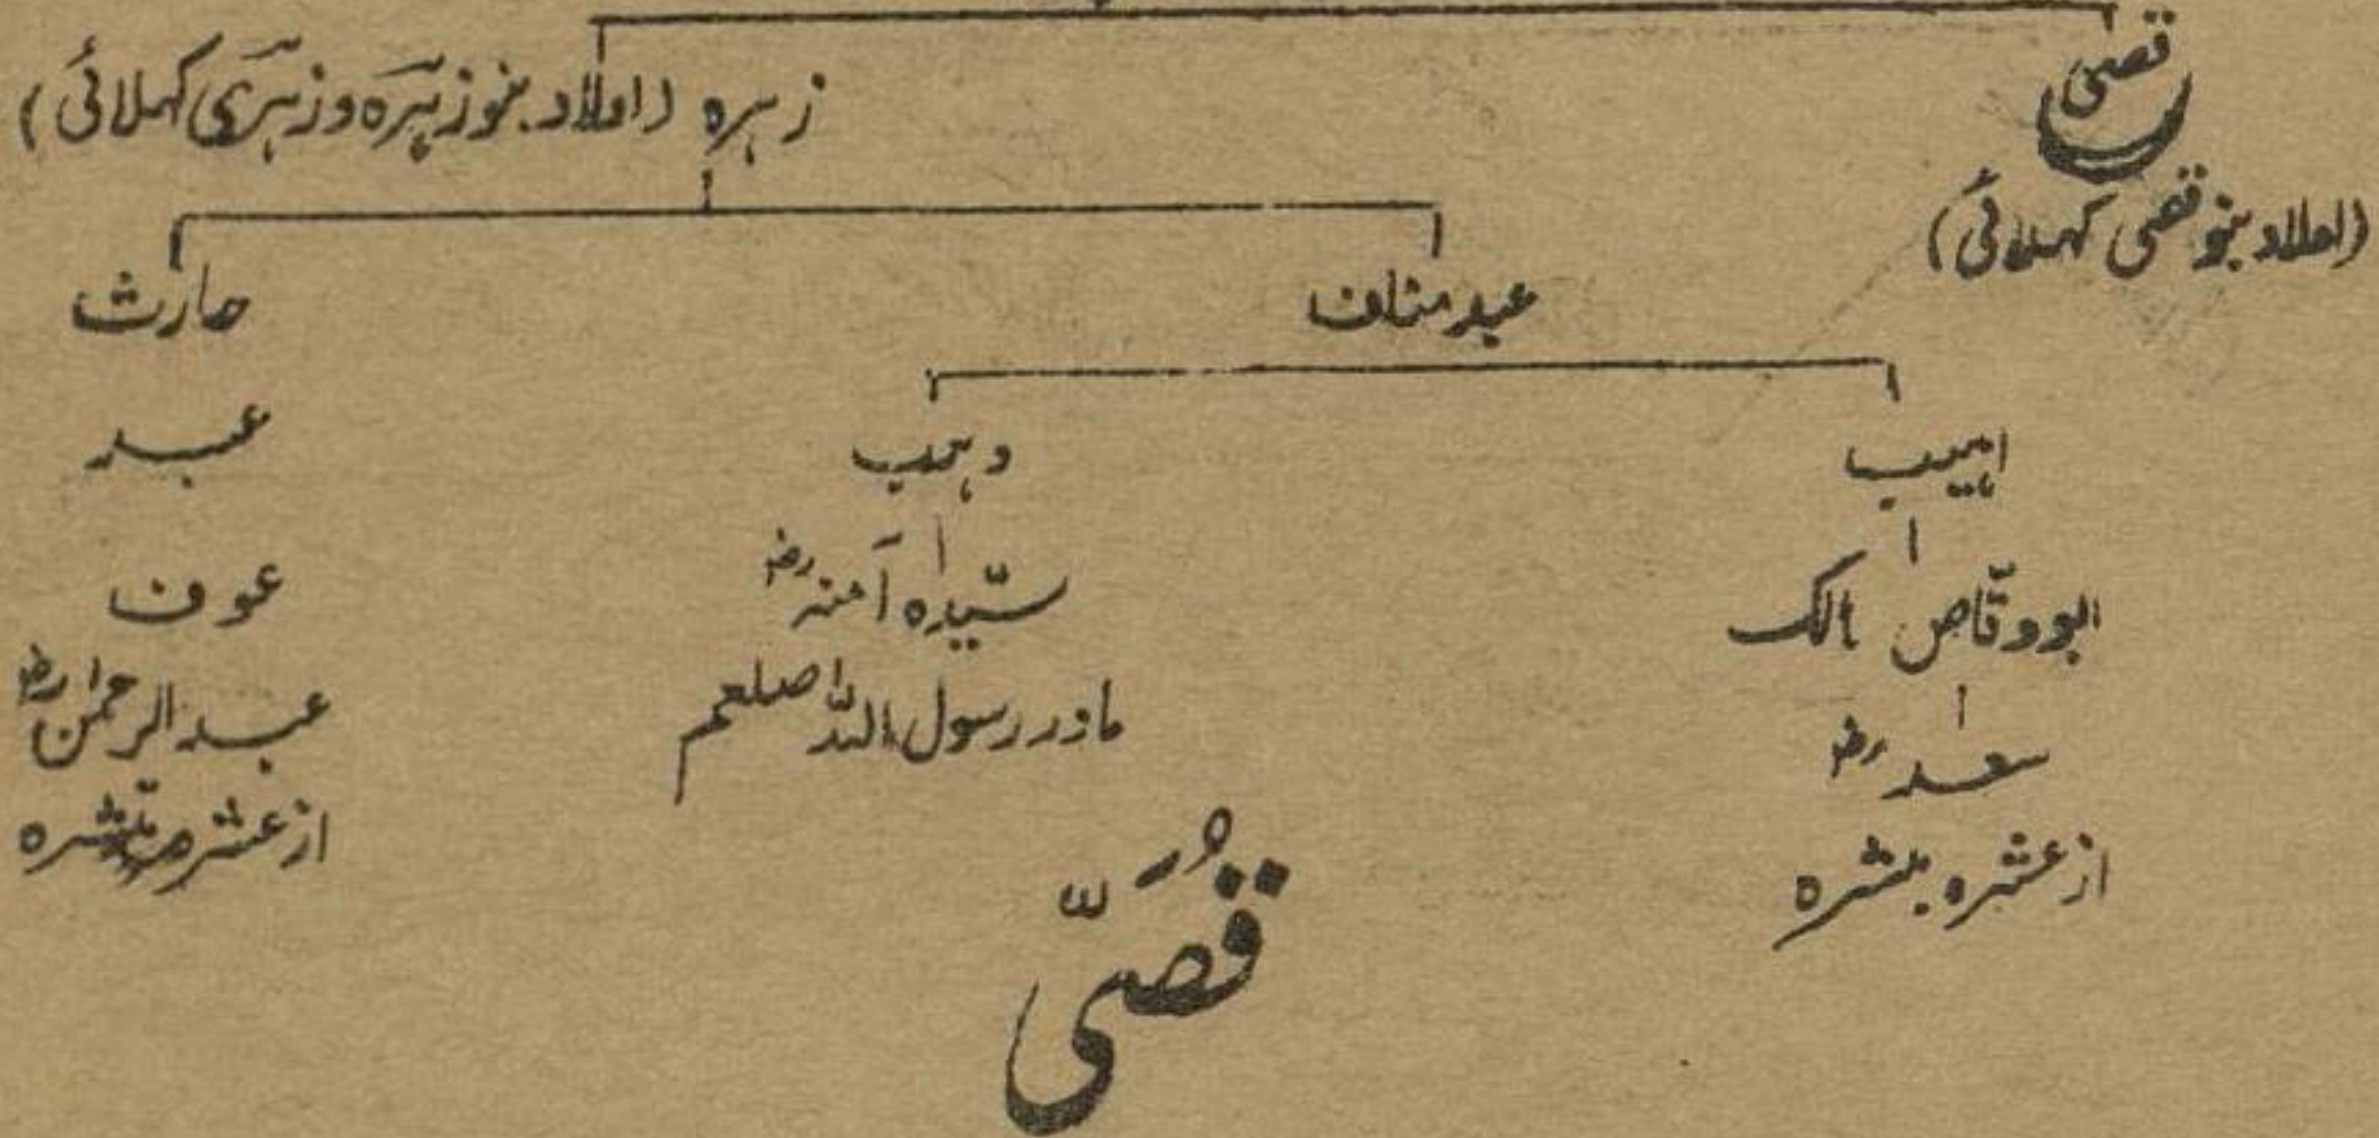 قصی
زہرہ (اولاد بنو زہرہ و زہری کہلائی)
(اولاد بنو قصی کہلائی)
عبد مناف
حارث
اہیب
وہب
عبد
ابو وقاص مالک
سیّدہ آمنہ رض
عوف
سعد رض
مادر رسول اللہ صلعم
عبد الرحمن رض
از عشرہ مبشرہ
از عشرہ مبشرہ
قُصَیّ